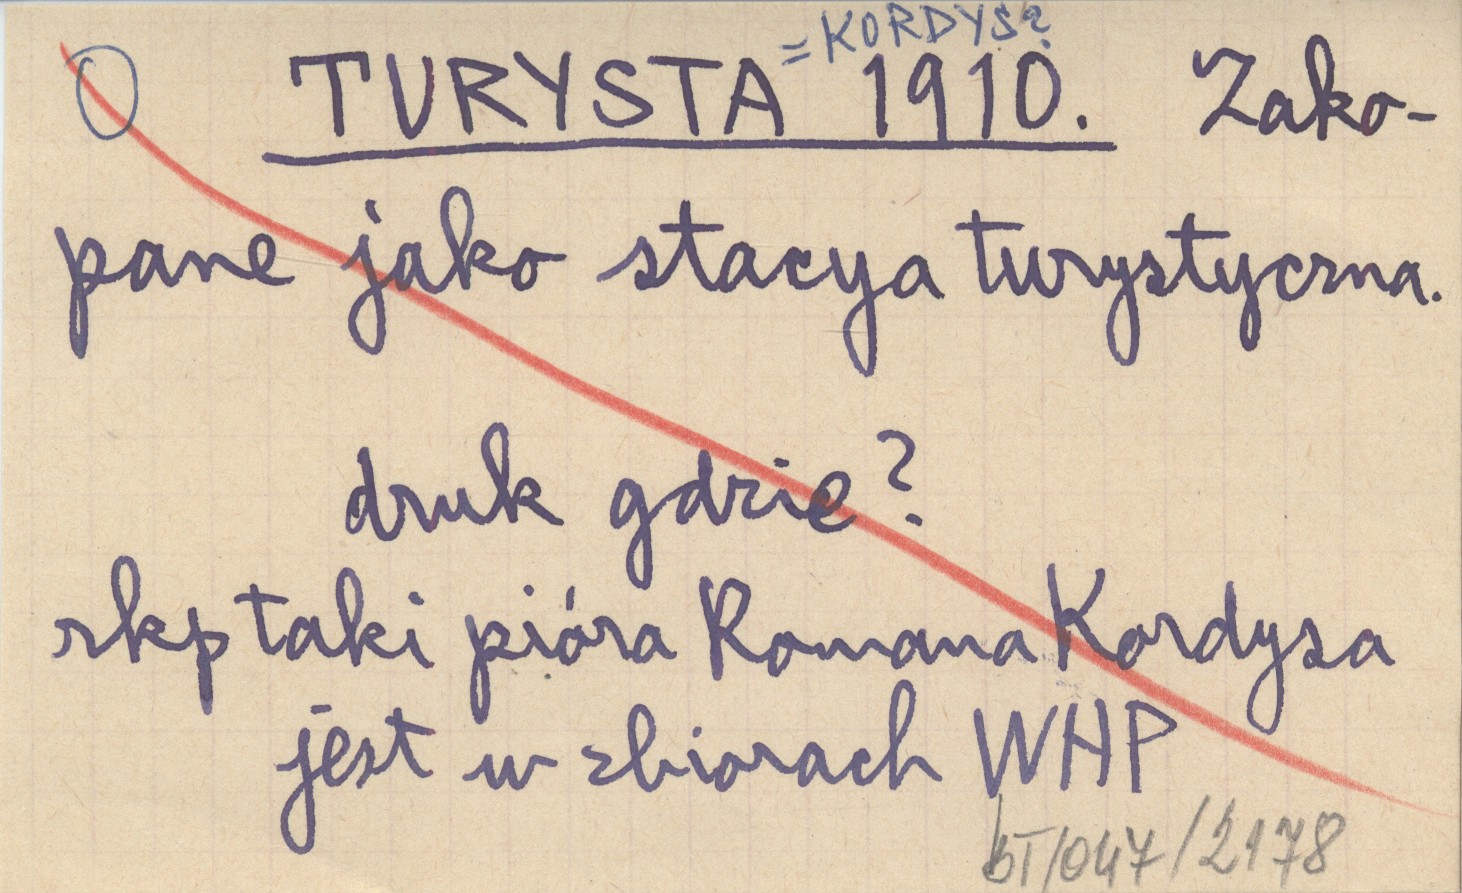 = KORDYS?
TURYSTA 1910. Zako-
pane jako stacya turystyczna.
druk gdzie?
rkp taki pióra Romana Kordysa
jest w zbiorach WHP
bT/047/2178